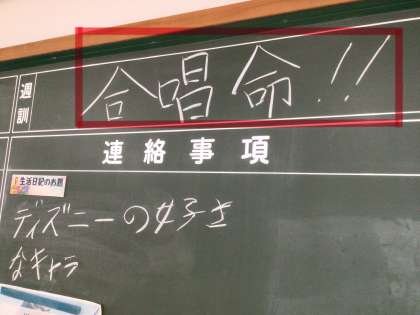 週訓
合唱命!!
連絡事項
生活日記のお題
ディズニーの好き
なキャラ